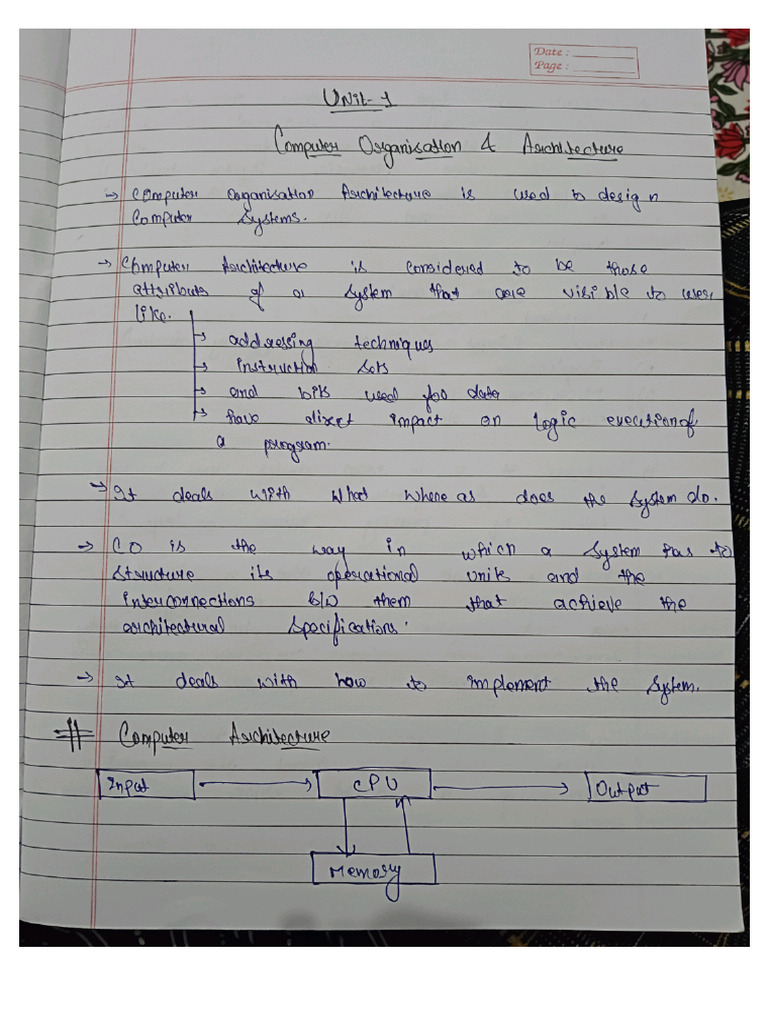 Date :
Page :
Unit-1
Computer Organisation & Architecture
→ Computer organisation Architecture is used to design
computer systems.
→ Computer Architecture is considered to be those
attributes of a system that are visible to user
like.
→ addressing techniques
→ instruction sets
→ and bits used for data
→ have direct impact on logic execution of
a program.
→ It deals with what where as does the system do.
→ CO is the way in which a system has to
structure its operational units and the
interconnections b/w them that achieve the
architectural specifications.
→ It deals with how to implement the system.
# Computer Architecture
Input → CPU → Output
Memory